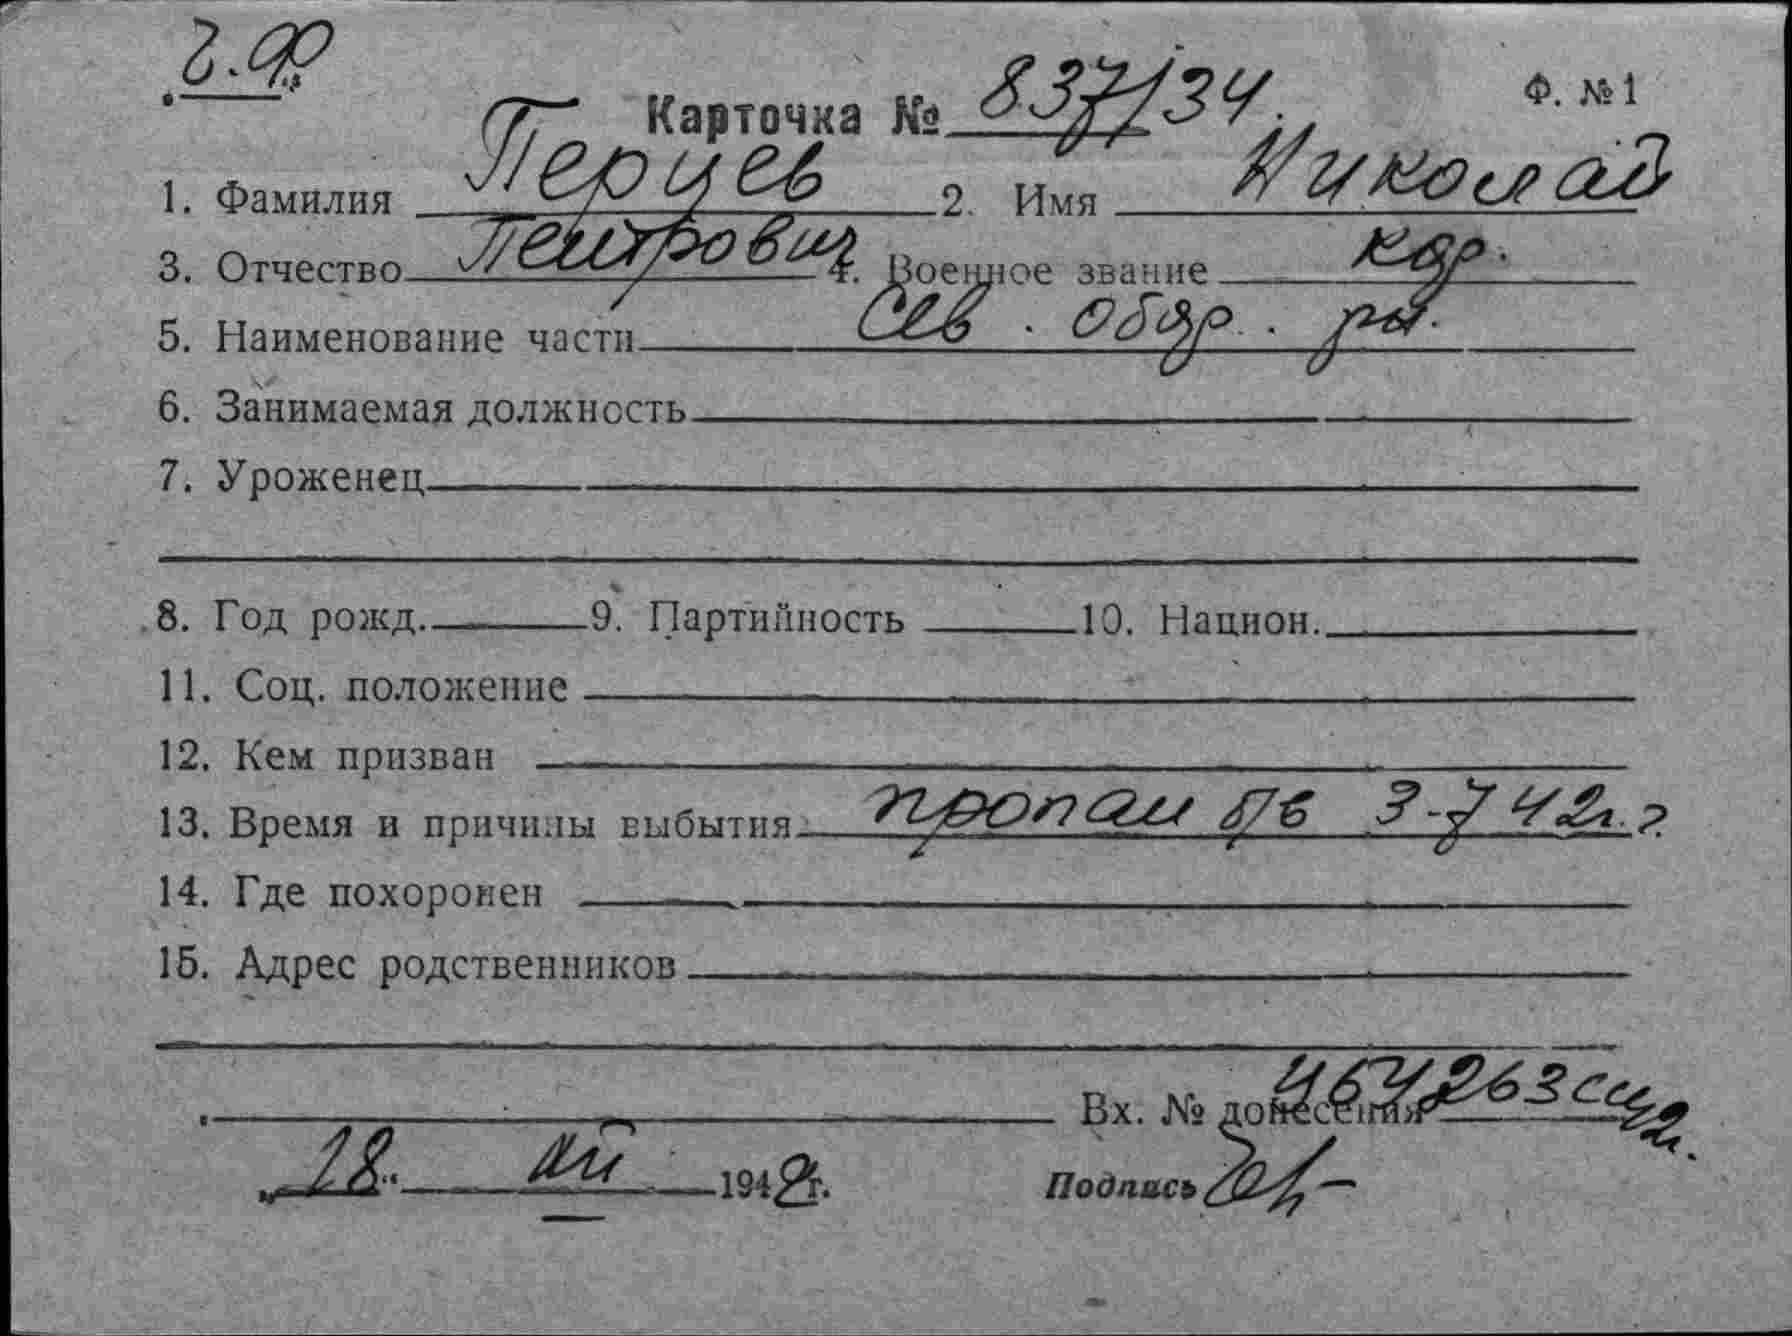 Ф. №1
Карточка № 837/34.
1. Фамилия Перцев 2. Имя Николай
3. Отчество Петрович 4. Военное звание кдр.
5. Наименование части Сев. обор. р-н.
6. Занимаемая должность
7. Уроженец
8. Год рожд. 9. Партийность 10. Национ.
11. Соц. положение
12. Кем призван
13. Время и причины выбытия пропал б/в 3-7 42 г.
14. Где похоронен
15. Адрес родственников
Вх. № донесения
"18" 1942 г. Подпись